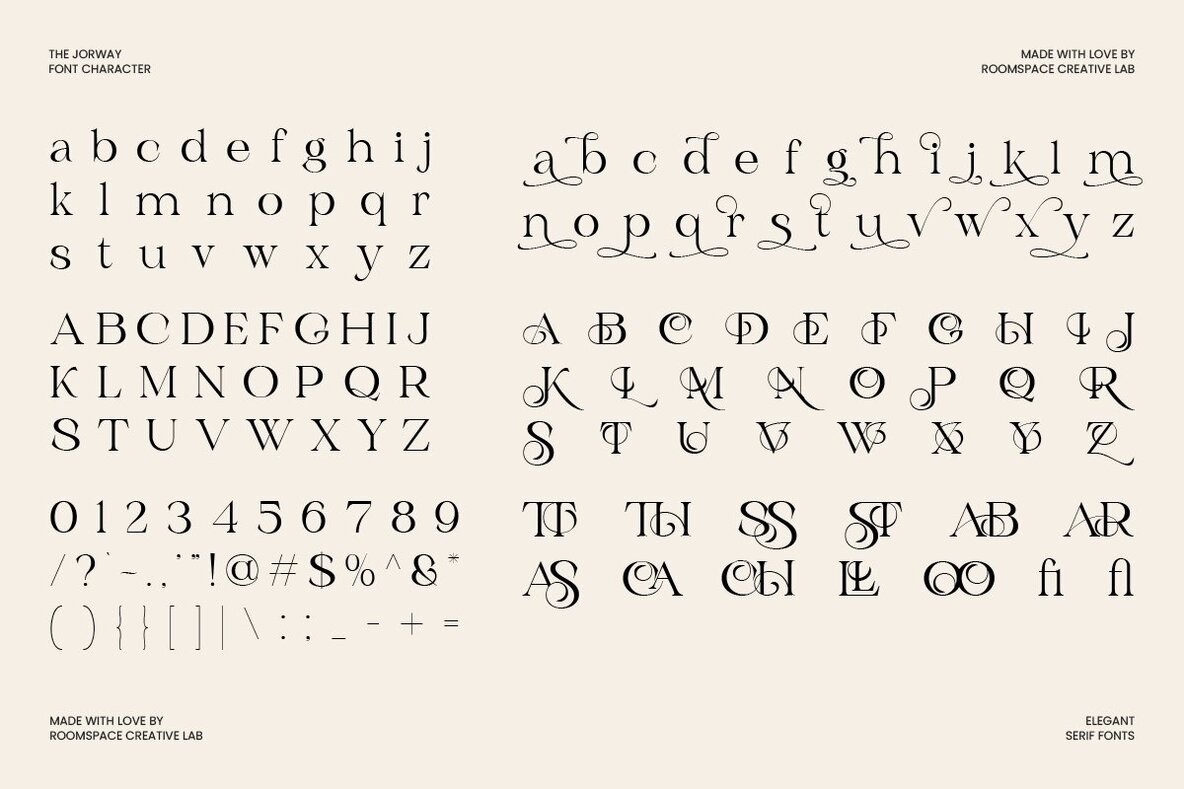 THE JORWAY
FONT CHARACTER
MADE WITH LOVE BY
ROOMSPACE CREATIVE LAB
a b c d e f g h i j
k l m n o p q r
s t u v w x y z
A B C D E F G H I J
K L M N O P Q R
S T U V W X Y Z
0 1 2 3 4 5 6 7 8 9
/ ? ` ~ . , ' " ! @ # $ % ^ & *
( ) { } [ ] | \ : ; _ - + =
a b c d e f g h i j k l m
n o p q r s t u v w x y z
A B C D E F G H I J
K L M N O P Q R
S T U V W X Y Z
TT TH SS ST AB AR
AS CA CH LL OO fi fl
MADE WITH LOVE BY
ROOMSPACE CREATIVE LAB
ELEGANT
SERIF FONTS